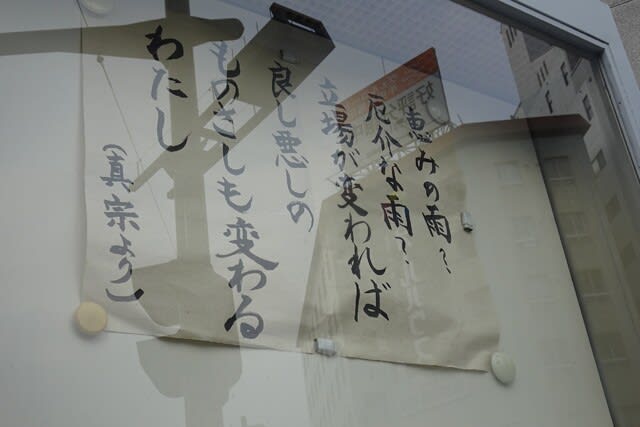 恵みの雨？
厄介な雨？
立場が変われば
良し悪しの
ものさしも変わる
わたし
（真宗より）